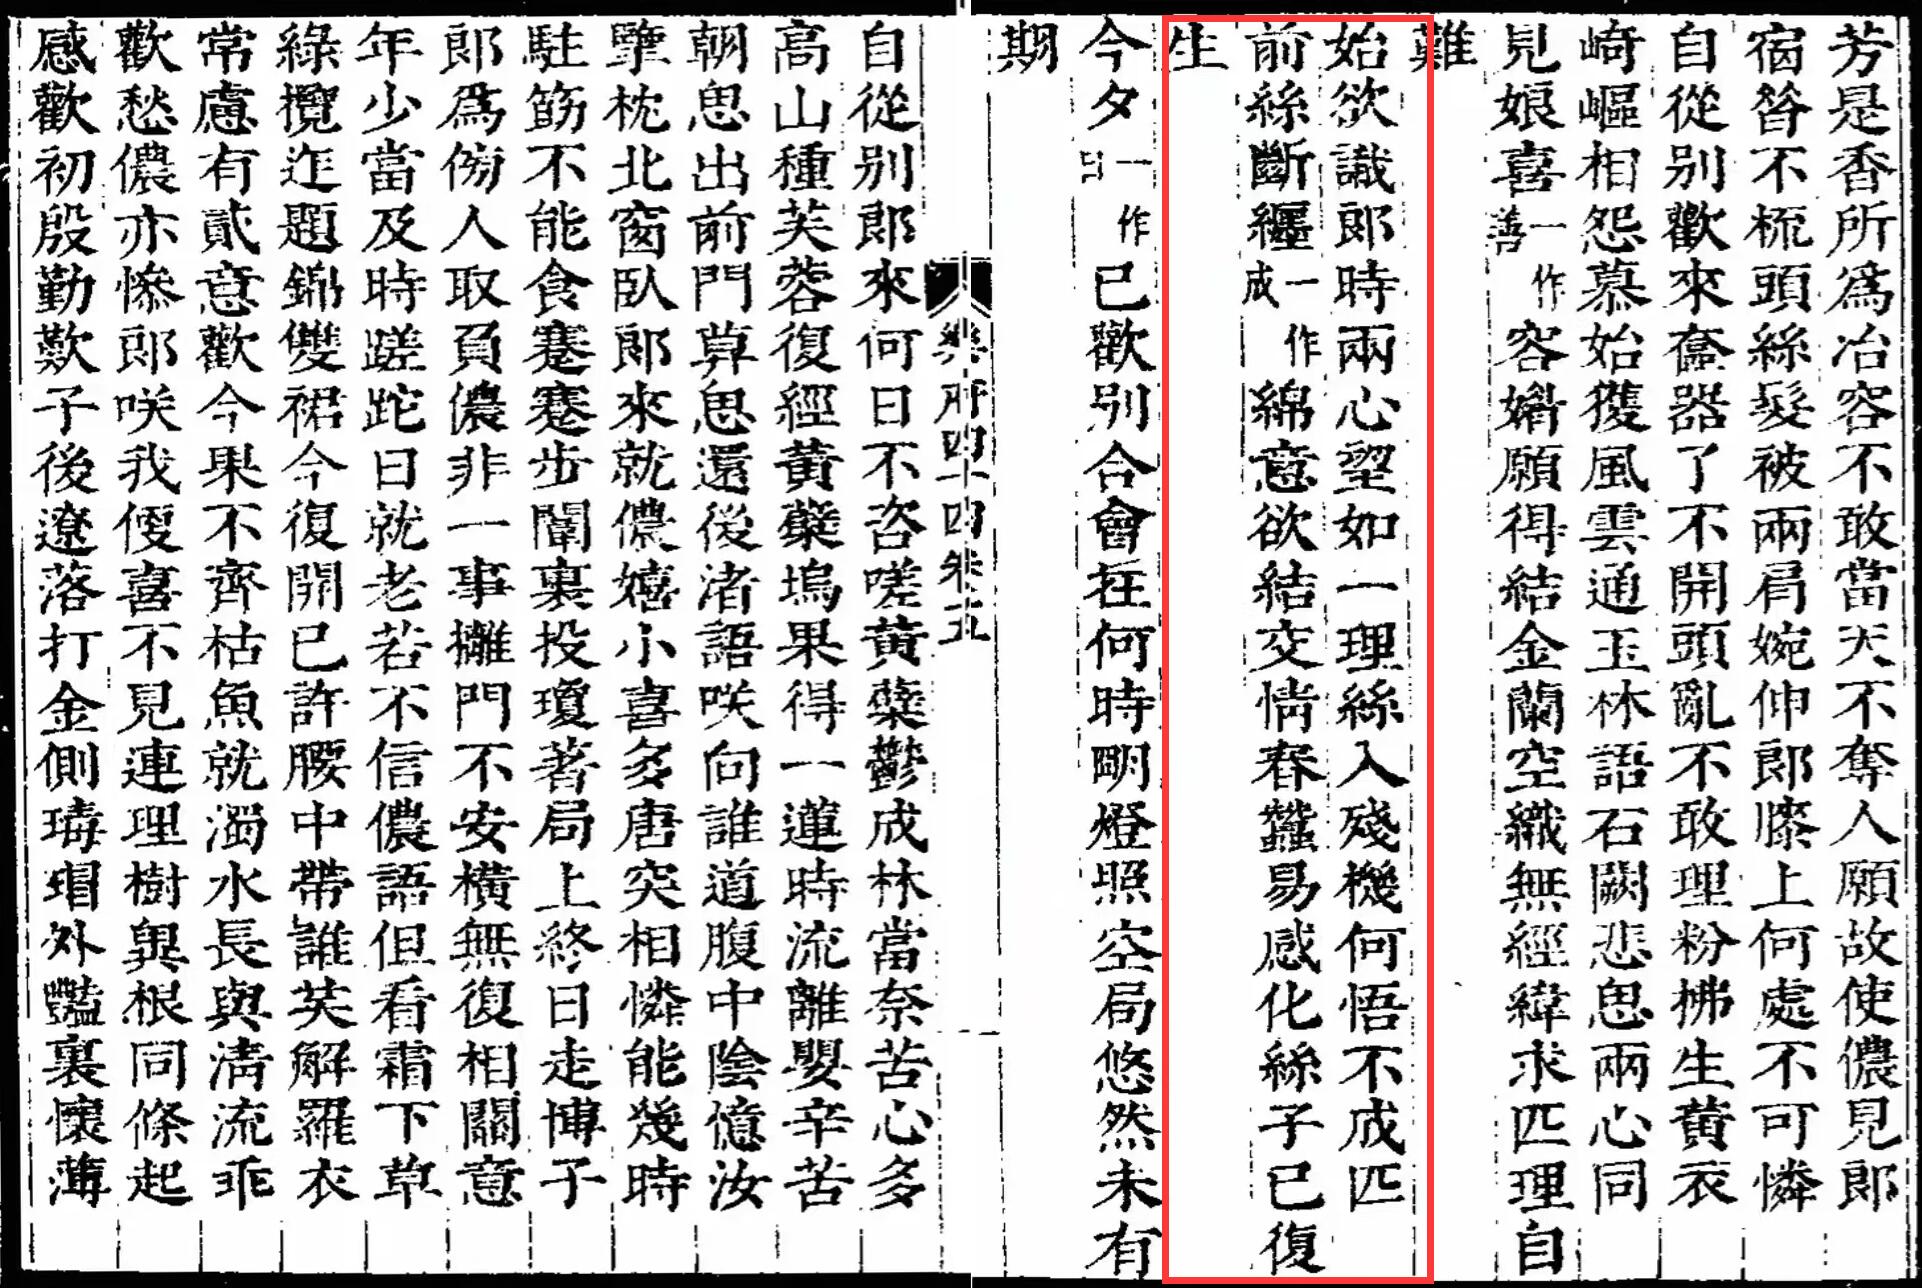 芳是香所爲冶容不敢當天不奪人願故使儂見郎
宿昔不梳頭絲髮被兩肩婉伸郎膝上何處不可憐
自從別歡來奩器了不開頭亂不敢理粉拂生黃衣
崎嶇相怨慕始獲風雲通玉林語石闕悲思兩心同
見娘喜一作善容媚願得結金蘭空織無經緯求匹理自
難
始欲識郎時兩心望如一理絲入殘機何悟不成匹
前絲斷纏一作成綿意欲結交情春蠶易感化絲子已復
生
今夕一作日已歡別合會在何時明燈照空局悠然未有
期
樂府四十四卷五
自從別郎來何日不咨嗟黃蘗鬱成林當奈苦心多
高山種芙蓉復經黃蘗塢果得一蓮時流離嬰辛苦
朝思出前門暮思還後渚語咲向誰道腹中陰憶汝
擥枕北窗臥郎來就儂嬉小喜多唐突相憐能幾時
駐筯不能食蹇蹇步闈裏投瓊著局上終日走博子
郎爲傍人取負儂非一事攡門不安橫無復相關意
年少當及時蹉跎日就老若不信儂語但看霜下草
綠攬迮題錦雙裙今復開已許腰中帶誰共解羅衣
常慮有貳意歡今果不齊枯魚就濁水長與清流乖
歡愁儂亦慘郎咲我便喜不見連理樹異根同條起
感歡初殷勤歎子後遼落打金側瑇瑁外豔裏懷薄